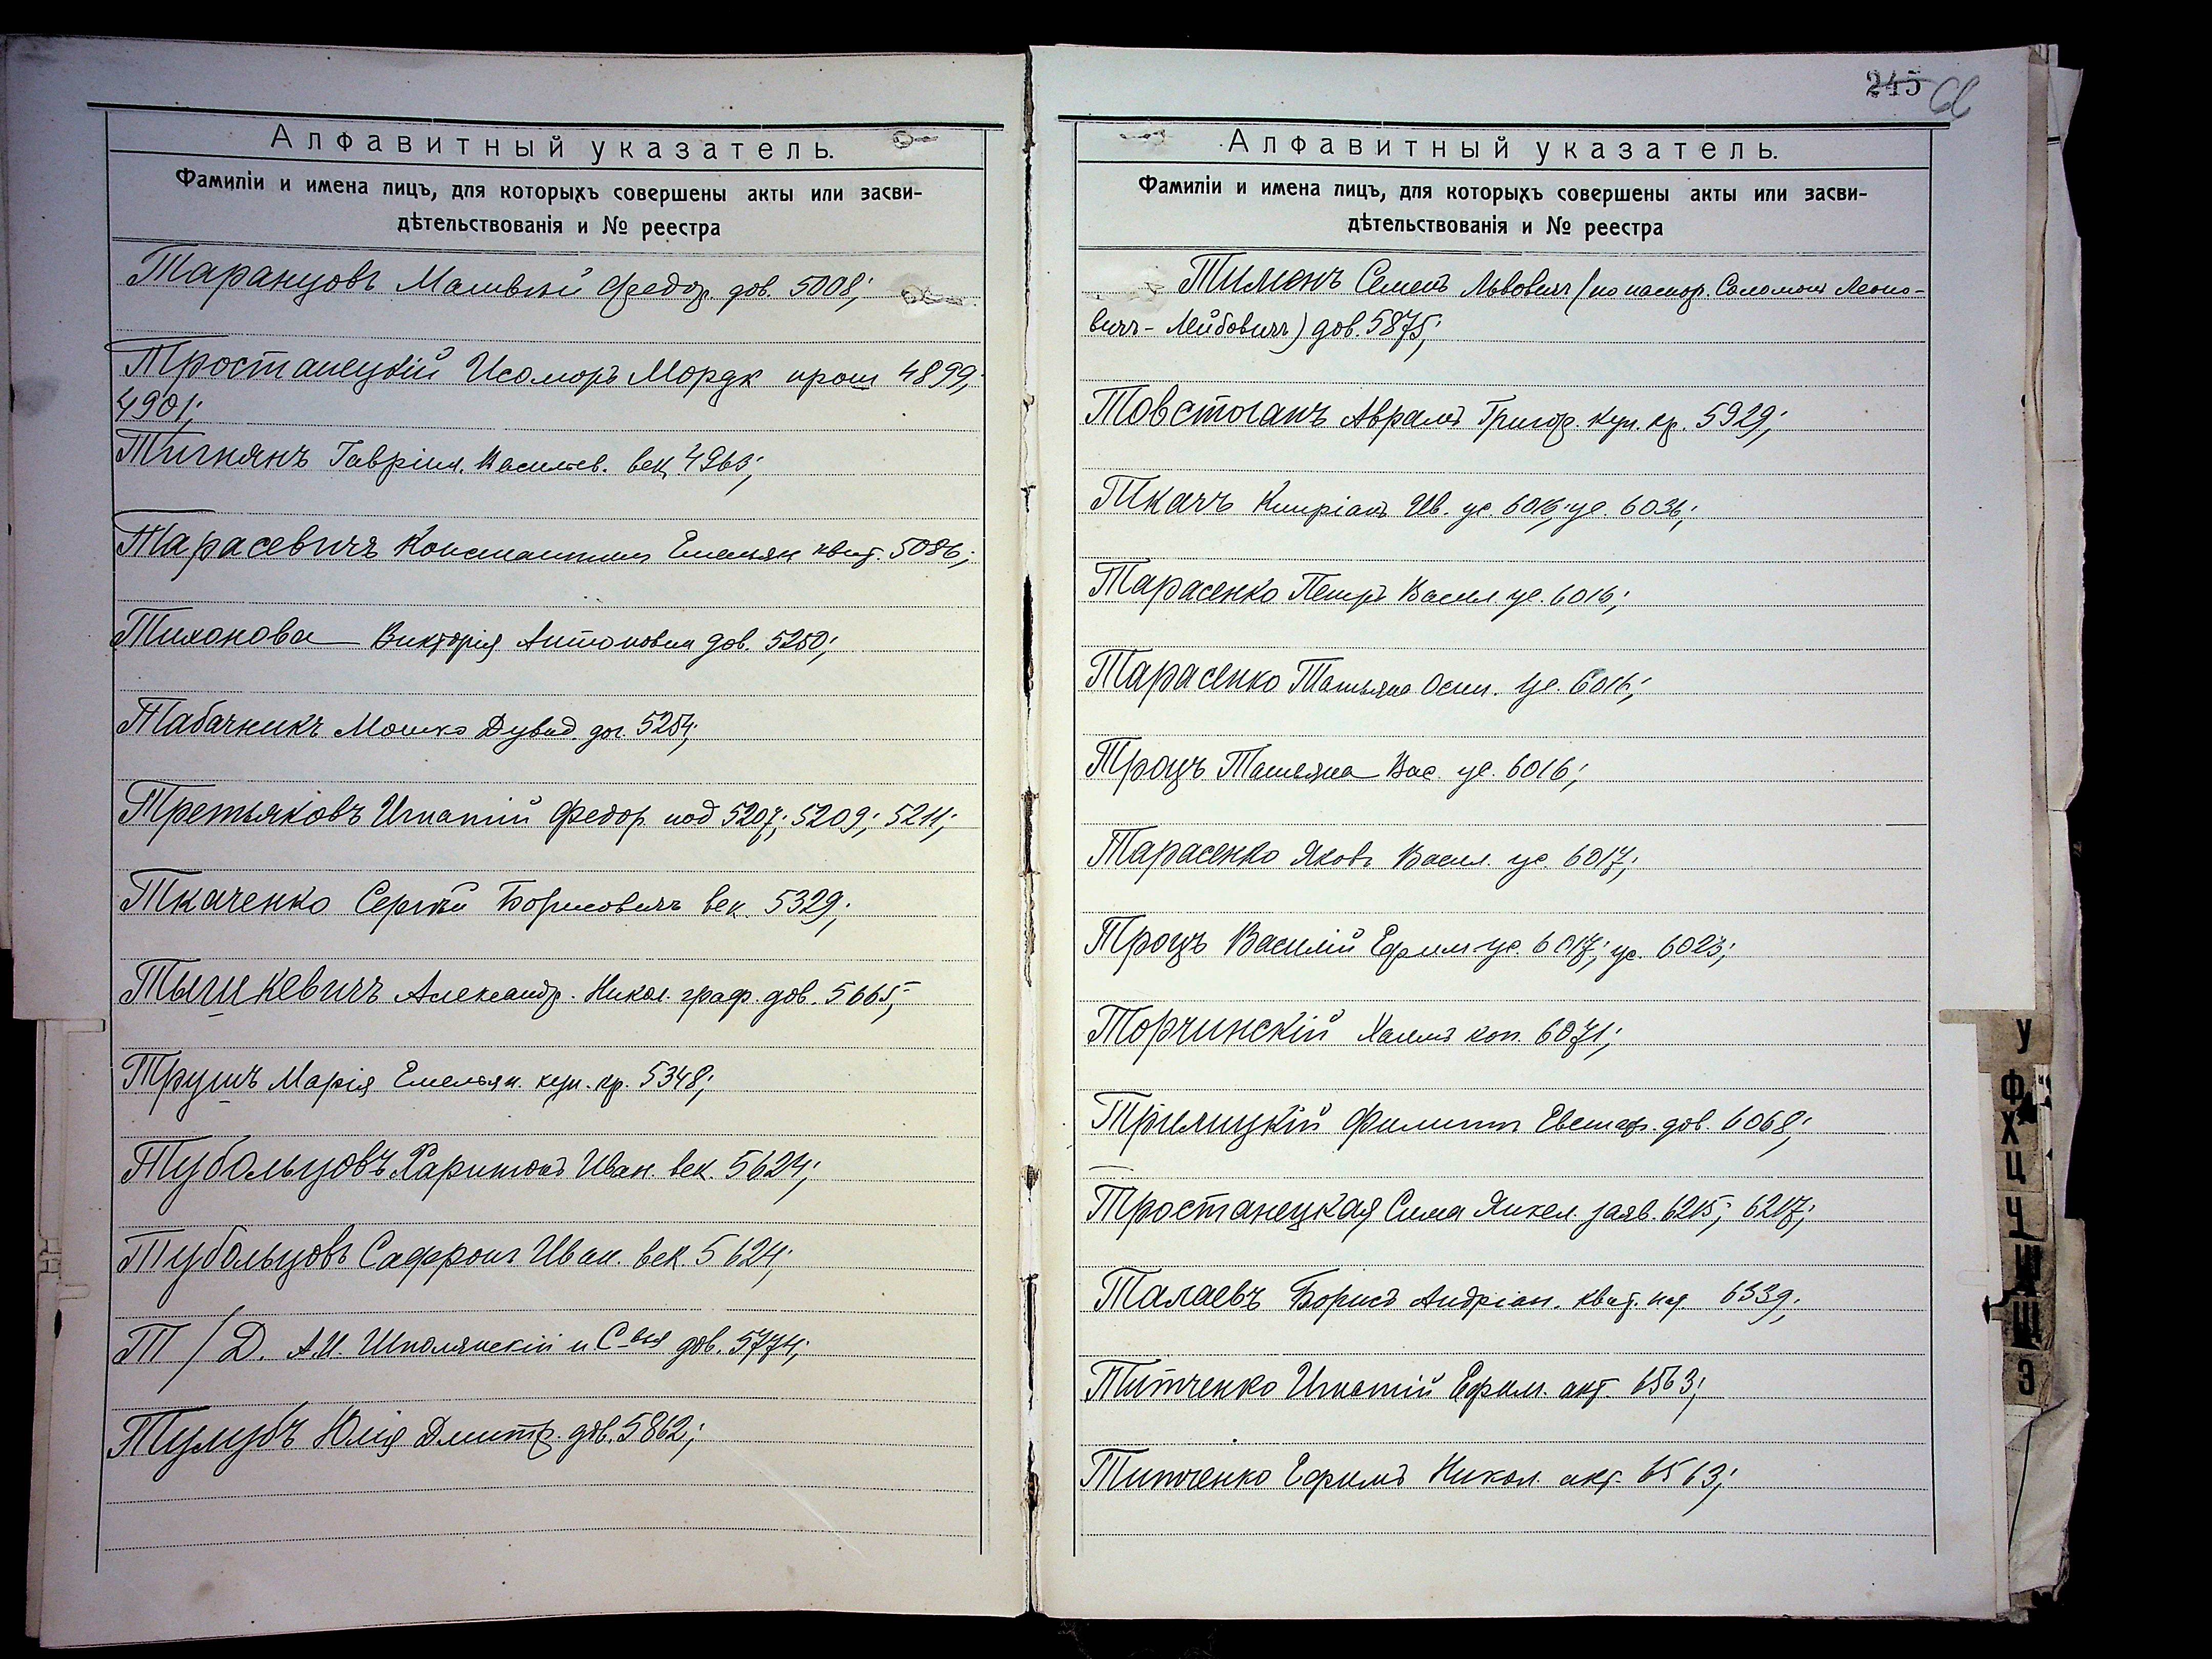 Алфавитный указатель.
Фамиліи и имена лицъ, для которыхъ совершены акты или засви-
дѣтельствованія и № реестра
Таранцовъ Матвѣй Федор. дов. 5008;
Тростанецкій Исоморъ Мордк прот 4899;
4901;
Тигнянъ Гавріил. Васильев. век 4963;
Тарасевичъ Константинъ Емельян квит. 5086;
Тихонова Викторія Антоновна дов. 5250;
Табачникъ Мошко Дувид. дог. 5254;
Третьяковъ Игнатій Федор. под 5207; 5209; 5211;
Ткаченко Сергѣй Борисовичъ век. 5329;
Тышкевичъ Александр. Никол. граф. дов. 5665;
Трушъ Марія Емельян. куп. кр. 5348;
Тубольцовъ Харитонъ Иван. век. 5624;
Тубольцовъ Сафронъ Иван. век. 5624;
Т/Д. А.И. Шполянскій и С-вья дов. 5774;
Тулубъ Юлія Дмитр. дов. 5862;
245
Алфавитный указатель.
Фамиліи и имена лицъ, для которыхъ совершены акты или засви-
дѣтельствованія и № реестра
Тименъ Семенъ Львовичъ (по паспор. Соломонъ Леоно-
вичъ-Лейбовичъ) дов. 5875;
Товстоганъ Аврамъ Григор. куп. кр. 5929;
Ткачъ Кипріанъ Ив. ус. 6016; ус. 6036;
Тарасенко Петръ Васил ус. 6016;
Тарасенко Татьяна Осип. ус. 6016;
Троцъ Татьяна Вас. ус. 6016;
Тарасенко Яковъ Васил. ус. 6017;
Троцъ Василій Ефим ус. 6017; ус. 6023;
Торчинскій Хаимъ коп. 6071;
Трилицкій Филиппъ Евстаф. дов. 6068;
Тростанецкая Сима Янкел. заяв. 6215; 6217;
Талаевъ Борисъ Андріан. квит. 6339;
Титченко Игнатій Ефим. акт 6563;
Титченко Ефимъ Никол. акт. 6563;
У
Ф
Х
Ц
Ч
Ш
Щ
Э